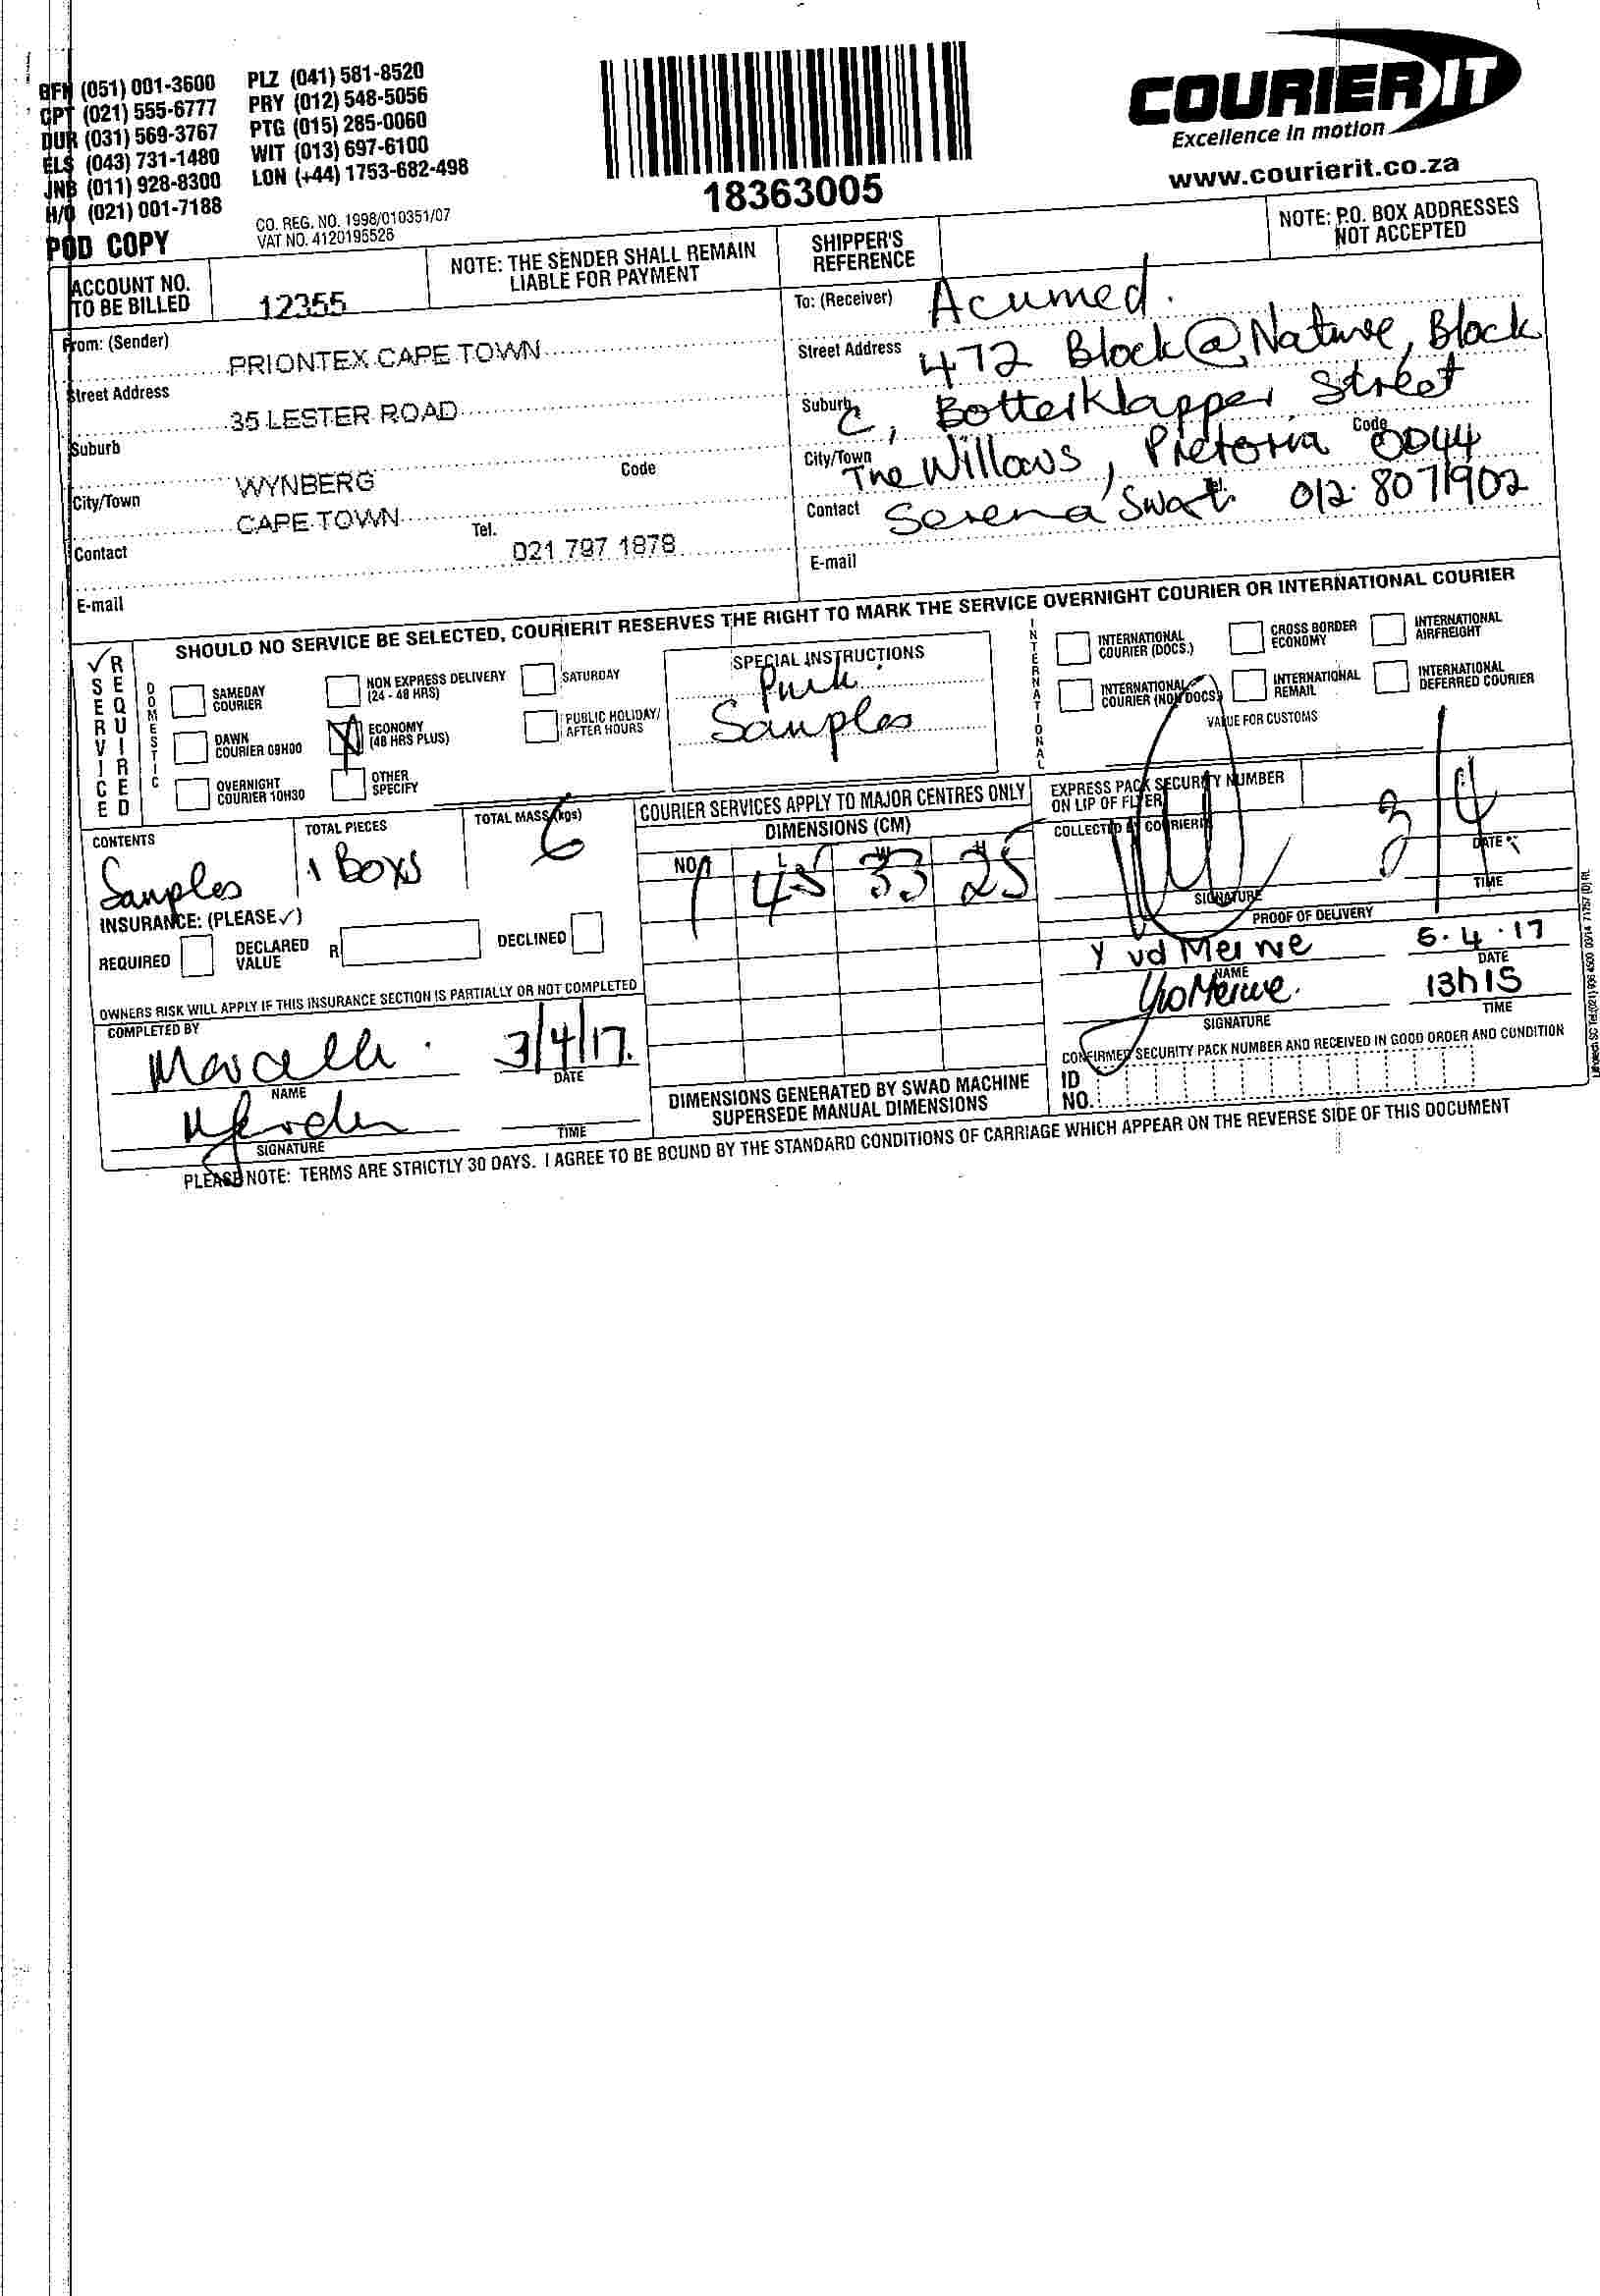 BFN (051) 001-3600 PLZ (041) 581-8520
CPT (021) 555-6777 PRY (012) 548-5056
DUR (031) 569-3767 PTG (015) 285-0060
ELS (043) 731-1480 WIT (013) 697-6100
JNB (011) 928-8300 LON (+44) 1753-682-498
H/O (021) 001-7188
POD COPY
CO. REG. NO. 1998/010351/07
VAT NO. 4120195526
18363005
COURIER IT
Excellence in motion
www.courierit.co.za
ACCOUNT NO. TO BE BILLED 12355
NOTE: THE SENDER SHALL REMAIN LIABLE FOR PAYMENT
SHIPPER'S REFERENCE
NOTE: P.O. BOX ADDRESSES NOT ACCEPTED
From: (Sender) PRIONTEX CAPE TOWN
Street Address 35 LESTER ROAD
Suburb WYNBERG Code
City/Town CAPE TOWN
Contact Tel. 021 797 1878
E-mail
To: (Receiver) Acumed.
Street Address 472 Block @ Nature, Block
Suburb C, Botterklapper Street
City/Town The Willows, Pretoria Code 0044
Contact Serena Swart Tel. 012 8071902
E-mail
SHOULD NO SERVICE BE SELECTED, COURIERIT RESERVES THE RIGHT TO MARK THE SERVICE OVERNIGHT COURIER OR INTERNATIONAL COURIER
✓ SERVICE REQUIRED
DOMESTIC
SAMEDAY COURIER
NON EXPRESS DELIVERY (24 - 48 HRS)
SATURDAY
DAWN COURIER 09H00
X ECONOMY (48 HRS PLUS)
PUBLIC HOLIDAY/ AFTER HOURS
OVERNIGHT COURIER 10H30
OTHER SPECIFY
SPECIAL INSTRUCTIONS
Samples
INTERNATIONAL
INTERNATIONAL COURIER (DOCS.)
CROSS BORDER ECONOMY
INTERNATIONAL AIRFREIGHT
INTERNATIONAL COURIER (NON DOCS)
INTERNATIONAL REMAIL
INTERNATIONAL DEFERRED COURIER
VALUE FOR CUSTOMS
CONTENTS Samples
TOTAL PIECES 1 Boxs
TOTAL MASS (kgs) 6
INSURANCE: (PLEASE ✓)
REQUIRED DECLARED VALUE R DECLINED
OWNERS RISK WILL APPLY IF THIS INSURANCE SECTION IS PARTIALLY OR NOT COMPLETED
COMPLETED BY
3/4/17.
NAME DATE
SIGNATURE TIME
COURIER SERVICES APPLY TO MAJOR CENTRES ONLY
DIMENSIONS (CM)
NO. L W H
1 45 33 25
DIMENSIONS GENERATED BY SWAD MACHINE SUPERSEDE MANUAL DIMENSIONS
EXPRESS PACK SECURITY NUMBER ON LIP OF FLYER
COLLECTED BY COURIERIT 3/4
DATE
SIGNATURE TIME
PROOF OF DELIVERY
Y vd Merwe 5.4.17
NAME DATE
13h15
SIGNATURE TIME
CONFIRMED SECURITY PACK NUMBER AND RECEIVED IN GOOD ORDER AND CONDITION
ID NO.
PLEASE NOTE: TERMS ARE STRICTLY 30 DAYS. I AGREE TO BE BOUND BY THE STANDARD CONDITIONS OF CARRIAGE WHICH APPEAR ON THE REVERSE SIDE OF THIS DOCUMENT